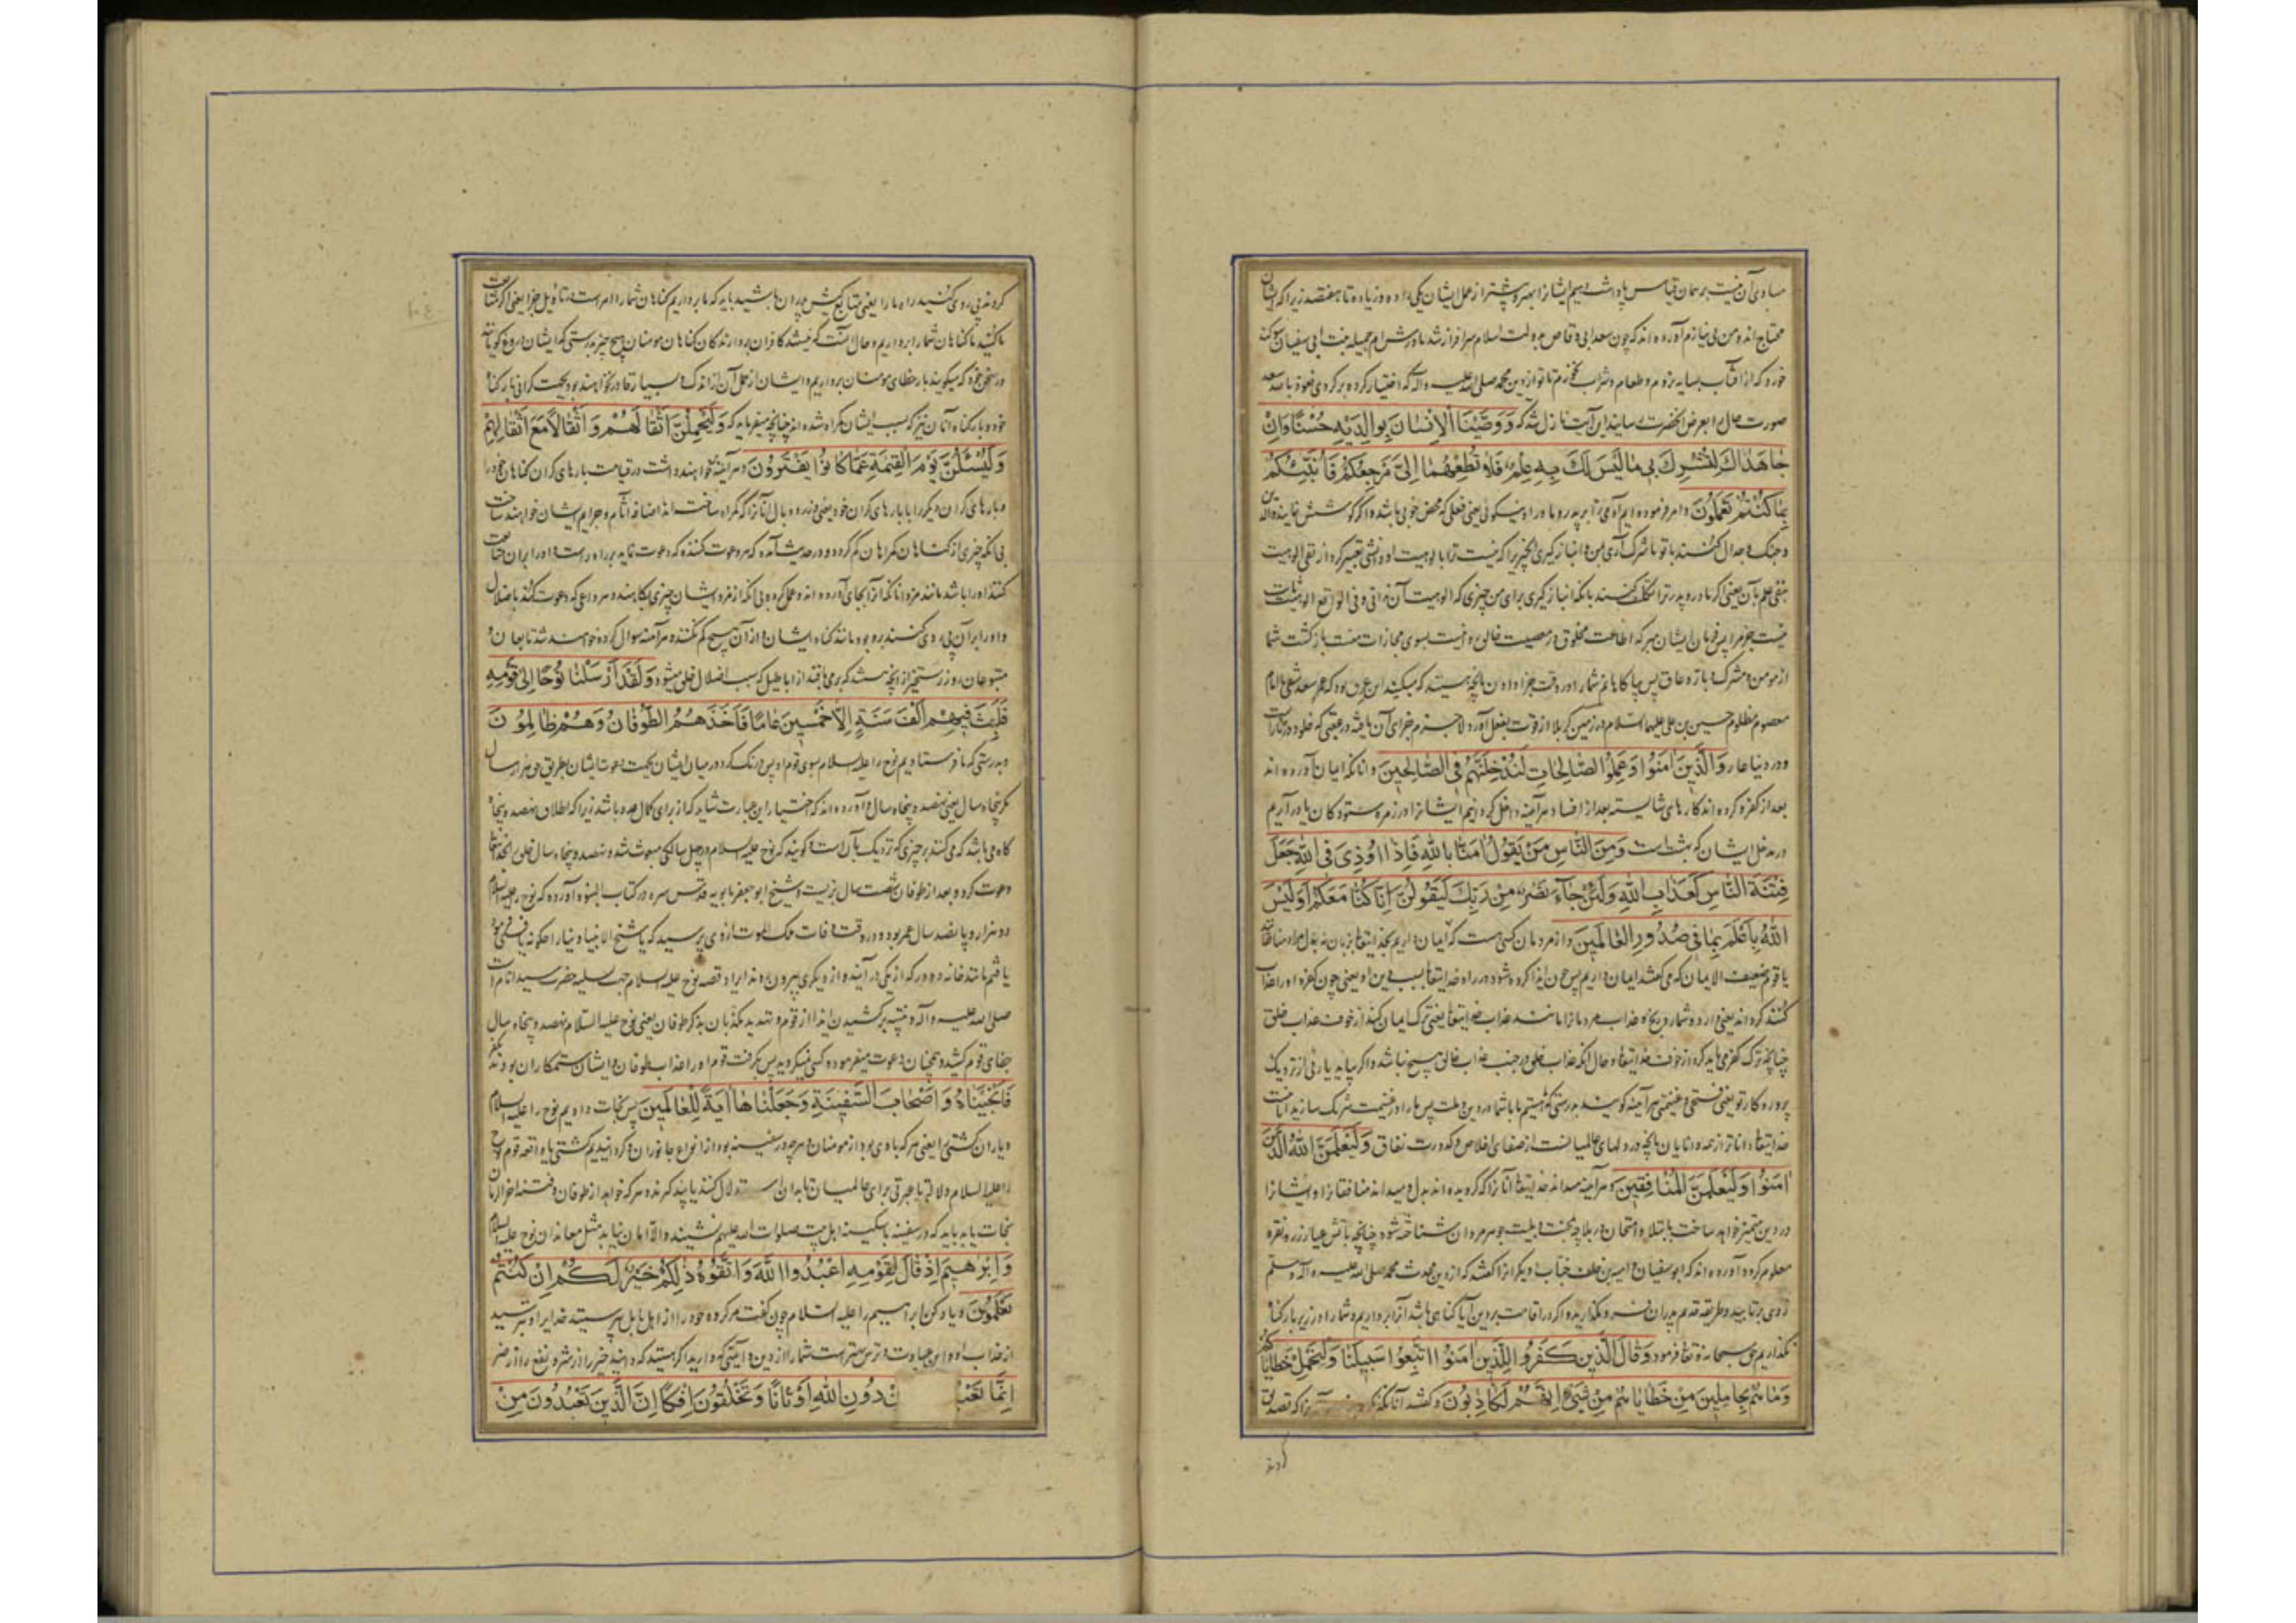 مساوی آن نیست بر همان قیاس پاداش دهیم ایشانرا بهتر و بیشتر از عمل ایشان یکی را ده و زیاده تا هفتصد زیرا که ایشان
محتاج اند و من بی نیازم آورده اند که چون سعد ابی وقاص بدولت اسلام سرافراز شد مادرش ام جمیله بنت ابی سفیان سوکند
خورد که از آفتاب بسایه نروم و طعام و شراب نخورم تا تو از دین محمد صلی الله علیه و آله که اختیار کرده برکردی فعوذ بالله سعد
صورت حال را بعرض انحضرت رسانید این آیت نازل شد که وَوَصَّیْنَا الْاِنْسَانَ بِوَالِدَیْهِ حُسْنًا وَاِنْ
جَاهَدَاكَ لِتُشْرِكَ بِی مَا لَیْسَ لَكَ بِهِ عِلْمٌ فَلَا تُطِعْهُمَا اِلَیَّ مَرْجِعُكُمْ فَاُنَبِّئُكُمْ
بِمَا كُنْتُمْ تَعْمَلُونَ و امر فرموده ایم آدمی را بر پدر و مادر او نیکویی یعنی فعلی که محض خوبی باشد و اکر کوشش نمایند والدین
و جنک و جدال کنند با تو تا شرک آری بمن و انباز کیری انچیز را که نیست ترا بالوهیت او دانشی تعبیر کرد از نفی الوهیت
بنفی علم بآن یعنی اکر مادر و پدر ترا تکلیف کنند بانکه انباز کیری برای من چیزی که الوهیت آن ندانی و فی الواقع الوهیت ثابت
نیست جز مرا پس فرمان ایشان مبر که اطاعت مخلوق در معصیت خالق روا نیست بسوی مجازات منست بازکشت شما
از مومن و مشرک و بار و عاق پس بیاکاهانم شما را در وقت جزا دادن بانچه هستید که میکنید
معصوم مظلوم حسین بن علی علیهما السلام در زمین کربلا از قوت بفعل آورد لاجرم جزای آن یافته در عقبی که خلود در نارست
و در دنیا عار وَالَّذِینَ اٰمَنُوا وَعَمِلُوا الصَّالِحَاتِ لَنُدْخِلَنَّهُمْ فِی الصَّالِحِینَ و انانکه ایمان آورده اند
بعد از کفر و کرده اند کارهای شایسته بعد از افساد هر آینه داخل کردانیم ایشانرا در زمره ستودکان یا در آریم
در مدخل ایشان که بهشت است وَمِنَ النَّاسِ مَنْ یَقُولُ اٰمَنَّا بِاللّٰهِ فَاِذَا اُوذِیَ فِی اللّٰهِ جَعَلَ
فِتْنَةَ النَّاسِ كَعَذَابِ اللّٰهِ وَلَئِنْ جَآءَ نَصْرٌ مِنْ رَبِّكَ لَیَقُولُنَّ اِنَّا كُنَّا مَعَكُمْ اَوَلَیْسَ
اللّٰهُ بِاَعْلَمَ بِمَا فِی صُدُورِ الْعَالَمِینَ و از مردمان کسی هست که ایمان داریم بخدایتعالی بزبان نه بدل مراد منافقانند
یا قوم ضعیف الایمان که می کفتند ایمان داریم پس چون ایذا کرده شود در راه خدایتعالی بسبب دین او یعنی چون کفره او را عذاب
کنند کرداند یعنی فرا رود شمارد رنج و عذاب مردمانرا مانند عذاب خدایتعالی یعنی ترک ایمان کند از خوف عذاب خلق
چنانچه ترک کفر می باید کرد از خوف خدایتعالی و حال انکه عذاب خلق در جنب عذاب خالق هیچ نباشد و اکر بیاید یاریی از نزدیک
پروردکار تو یعنی فتحی و غنیمتی هر آینه کویند بدرستیکه هستیم ما با شما در دین و ملت پس ما را در غنیمت شریک سازید ایا نیست
خدایتعالی داناتر از همه دانایان بانچه در دلهای عالمیانست از صفای اخلاص و کدورت نفاق وَلَیَعْلَمَنَّ اللّٰهُ الَّذِینَ
اٰمَنُوا وَلَیَعْلَمَنَّ الْمُنَافِقِینَ و هر آینه میداند خدایتعالی آنانرا که کرویده اند بدل و میداند منافقانرا و ایشانرا
در دین متمیز خواهد ساخت بابتلا و امتحان در بلا چه بمحنت و بلیت جوهر مردان شناخته شود چنانچه باتش عیار زر و نقره
معلوم کردد آورده اند که ابوسفیان و امیه بن خلف خباب و دیکرانرا کفتند که از دین محدث محمد صلی الله علیه و آله و سلم
روی برتابید و طریقه قدیم پدران مکذارید و اکر در اقامت بر دین آبا کناهی باشد آنرا برداریم و شما را در زیر بار کناه
نکذاریم حق سبحانه و تعالی فرمود وَقَالَ الَّذِینَ كَفَرُوا لِلَّذِینَ اٰمَنُوا اتَّبِعُوا سَبِیلَنَا وَلْنَحْمِلْ خَطَایَاكُمْ
وَمَا هُمْ بِحَامِلِینَ مِنْ خَطَایَاهُمْ مِنْ شَیْءٍ اِنَّهُمْ لَكَاذِبُونَ و کفتند آنانکه
کردند
کردند پی روی کنید راه ما را یعنی متابع کیش پدران باشید باید که ما برداریم کناهان شما را امرست بتاویل جزا یعنی اکر متابعت
ما کنید ما کناهان شما را برداریم و حال آنست که نیستند کافران بردارندکان کناهان مومنان هیچ چیز بدرستی که ایشان دروغ کویانند
در سخن خود که میکویند بار خطای مومنان برداریم و ایشان از حمل آن از اندک و بسیار قادر نخواهند بود بجهت کرانی بار کناه
خود و بار کناه آنان نیز که بسبب ایشان کمراه شده اند چنانچه میفرماید که وَلَیَحْمِلُنَّ اَثْقَالَهُمْ وَاَثْقَالًا مَعَ اَثْقَالِهِمْ
وَلَیُسْئَلُنَّ یَوْمَ الْقِیٰمَةِ عَمَّا كَانُوا یَفْتَرُونَ و هر آینه خواهند داشت در قیامت بارهای کران کناهان خود را
و بارهای کران دیکر را با بارهای کران خود یعنی وزر و وبال آنانرا که کمراه ساخته اند اضافه آثام و جرایم ایشان خواهند ساخت
بی انکه چیزی از کناهان کمراهان کم کردد و در حدیث آمده که هر دعوت کننده که دعوت نماید براه راست و او را بران متابعت
کنند او را باشد مانند مزد انانکه انرا بجای آورده اند و عمل کرده بی انکه از مزد ایشان چیزی بکاهند و هر داعی که دعوت کند باضلال
و او را بر آن پی روی کنند برو بود مانند کناه ایشان و از آن هیچ کم نکنند و هر آینه سوال کرده خواهند شد تابعان و
متبوعان روز رستخیز از انچه هستند که برمی بافتند از اباطیل که سبب اضلال خلق میشود وَلَقَدْ اَرْسَلْنَا نُوحًا اِلٰی قَوْمِهِ
فَلَبِثَ فِیهِمْ اَلْفَ سَنَةٍ اِلَّا خَمْسِینَ عَامًا فَاَخَذَهُمُ الطُّوفَانُ وَهُمْ ظَالِمُونَ
و بدرستی که ما فرستادیم نوح را علیه السلام بسوی قوم او پس درنک کرد در میان ایشان بجهت دعوت ایشان بطریق حق هزار سال
مکر پنجاه سال یعنی نهصد و پنجاه سال و آورده اند که اختیار این عبارت شاید که از برای کمال عدد باشد زیرا که اطلاق نهصد و پنجاه
کاه می باشد که می کنند بر چیزی که نزدیک بآن است و کویند که نوح علیه السلام در چهل سالکی مبعوث شد و نهصد و پنجاه سال خلق را بخدایتعالی
دعوت کرد و بعد از طوفان شصت سال بزیست و شیخ ابو جعفر بابویه قدس سره در کتاب النبوه آورده که نوح علیه السلام را
دو هزار و پانصد سال عمر بود و در وقت وفات ملک الموت از وی پرسید که یا شیخ الانبیاء دنیا را چکونه یافتی فرمود
یافتم مانند خانه دو در که از یکی درآیند و از دیکری بیرون روند ایراد قصه نوح علیه السلام جهت تسلیه حضرت سید انام است
صلی الله علیه و آله و تنبیه بر کشیدن ایذا از قوم و تهدید مکذبان بذکر طوفان یعنی نوح علیه السلام نهصد و پنجاه سال
جفای قوم کشید و همچنان دعوت میفرمود و کسی نمیکروید پس بکرفت قوم او را عذاب طوفان و ایشان ستمکاران بودند بکفر
فَاَنْجَیْنَاهُ وَاَصْحَابَ السَّفِینَةِ وَجَعَلْنَاهَا اٰیَةً لِلْعَالَمِینَ پس نجات دادیم نوح را علیه السلام
و یاران کشتی را یعنی هر که با وی بود از مومنان و هر چه در سفینه بود از انواع جانوران و کردانیدیم کشتی یا واقعه قوم نوح
را علیه السلام دلالتی یا عبرتی برای عالمیان تا بدان استدلال کنند یا پند کیرند و هر که خواهد از طوفان فتنه اخر الزمان
نجات یابد باید که در سفینه با سکینه اهل بیت صلوات الله علیهم نشیند و الا امان نیابد مثل معاندان نوح علیه السلام
وَاِبْرٰهِیمَ اِذْ قَالَ لِقَوْمِهِ اعْبُدُوا اللّٰهَ وَاتَّقُوهُ ذٰلِكُمْ خَیْرٌ لَكُمْ اِنْ كُنْتُمْ
تَعْلَمُونَ و یاد کن ابراهیم را علیه السلام چون کفت مر کروه خود را از اهل بابل بپرستید خدایرا و بترسید
از عذاب او و این عبادت و ترس بهتر است شما را از دین و آیینی که دارید اکر هستید که دانید خیر را از شر و نفع را از ضر
اِنَّمَا تَعْبُ دُونِ اللّٰهِ اَوْثَانًا وَتَخْلُقُونَ اِفْكًا اِنَّ الَّذِینَ تَعْبُدُونَ مِنْ